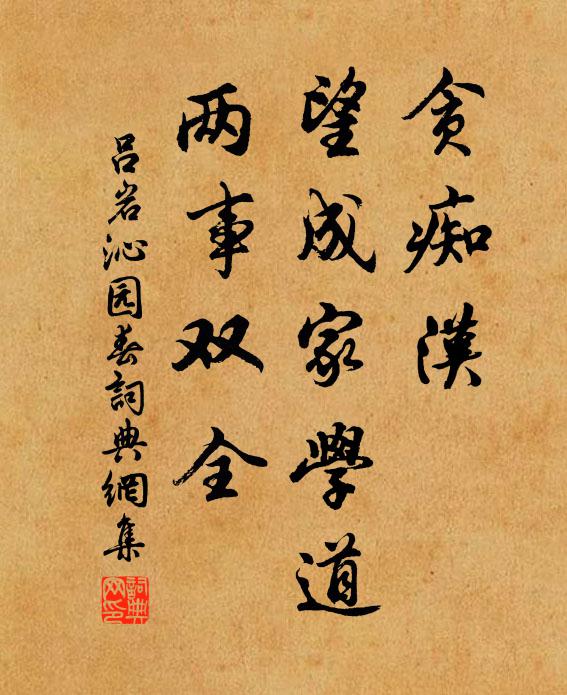 贪痴漢
望成家學道
两事双全
吕岩沁园春詞典網集
詞典
网印